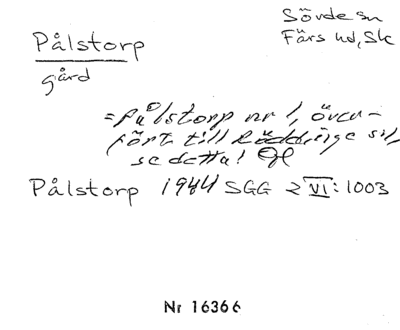 Pålstorp
Sövde sn
Färs hd, Sk
gård
= Pålstorp nr 1, över-
fört till Röddinge sn,
se detta!
Pålstorp 1944 SGG 2 VI: 1003
Nr 16366